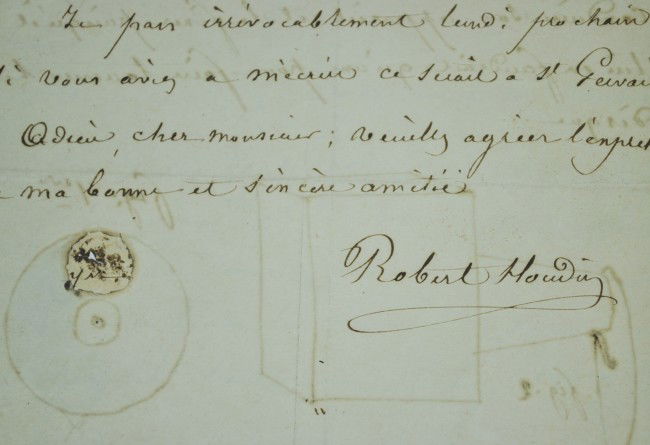 Je pars irrévocablement lundi prochain
si vous aviez a m'ecrire ce serait a St Gervais
Adieu, cher monsieur; veuillez agréer l'expres
ma bonne et sincère amitié
Robert Houdin
fig 2